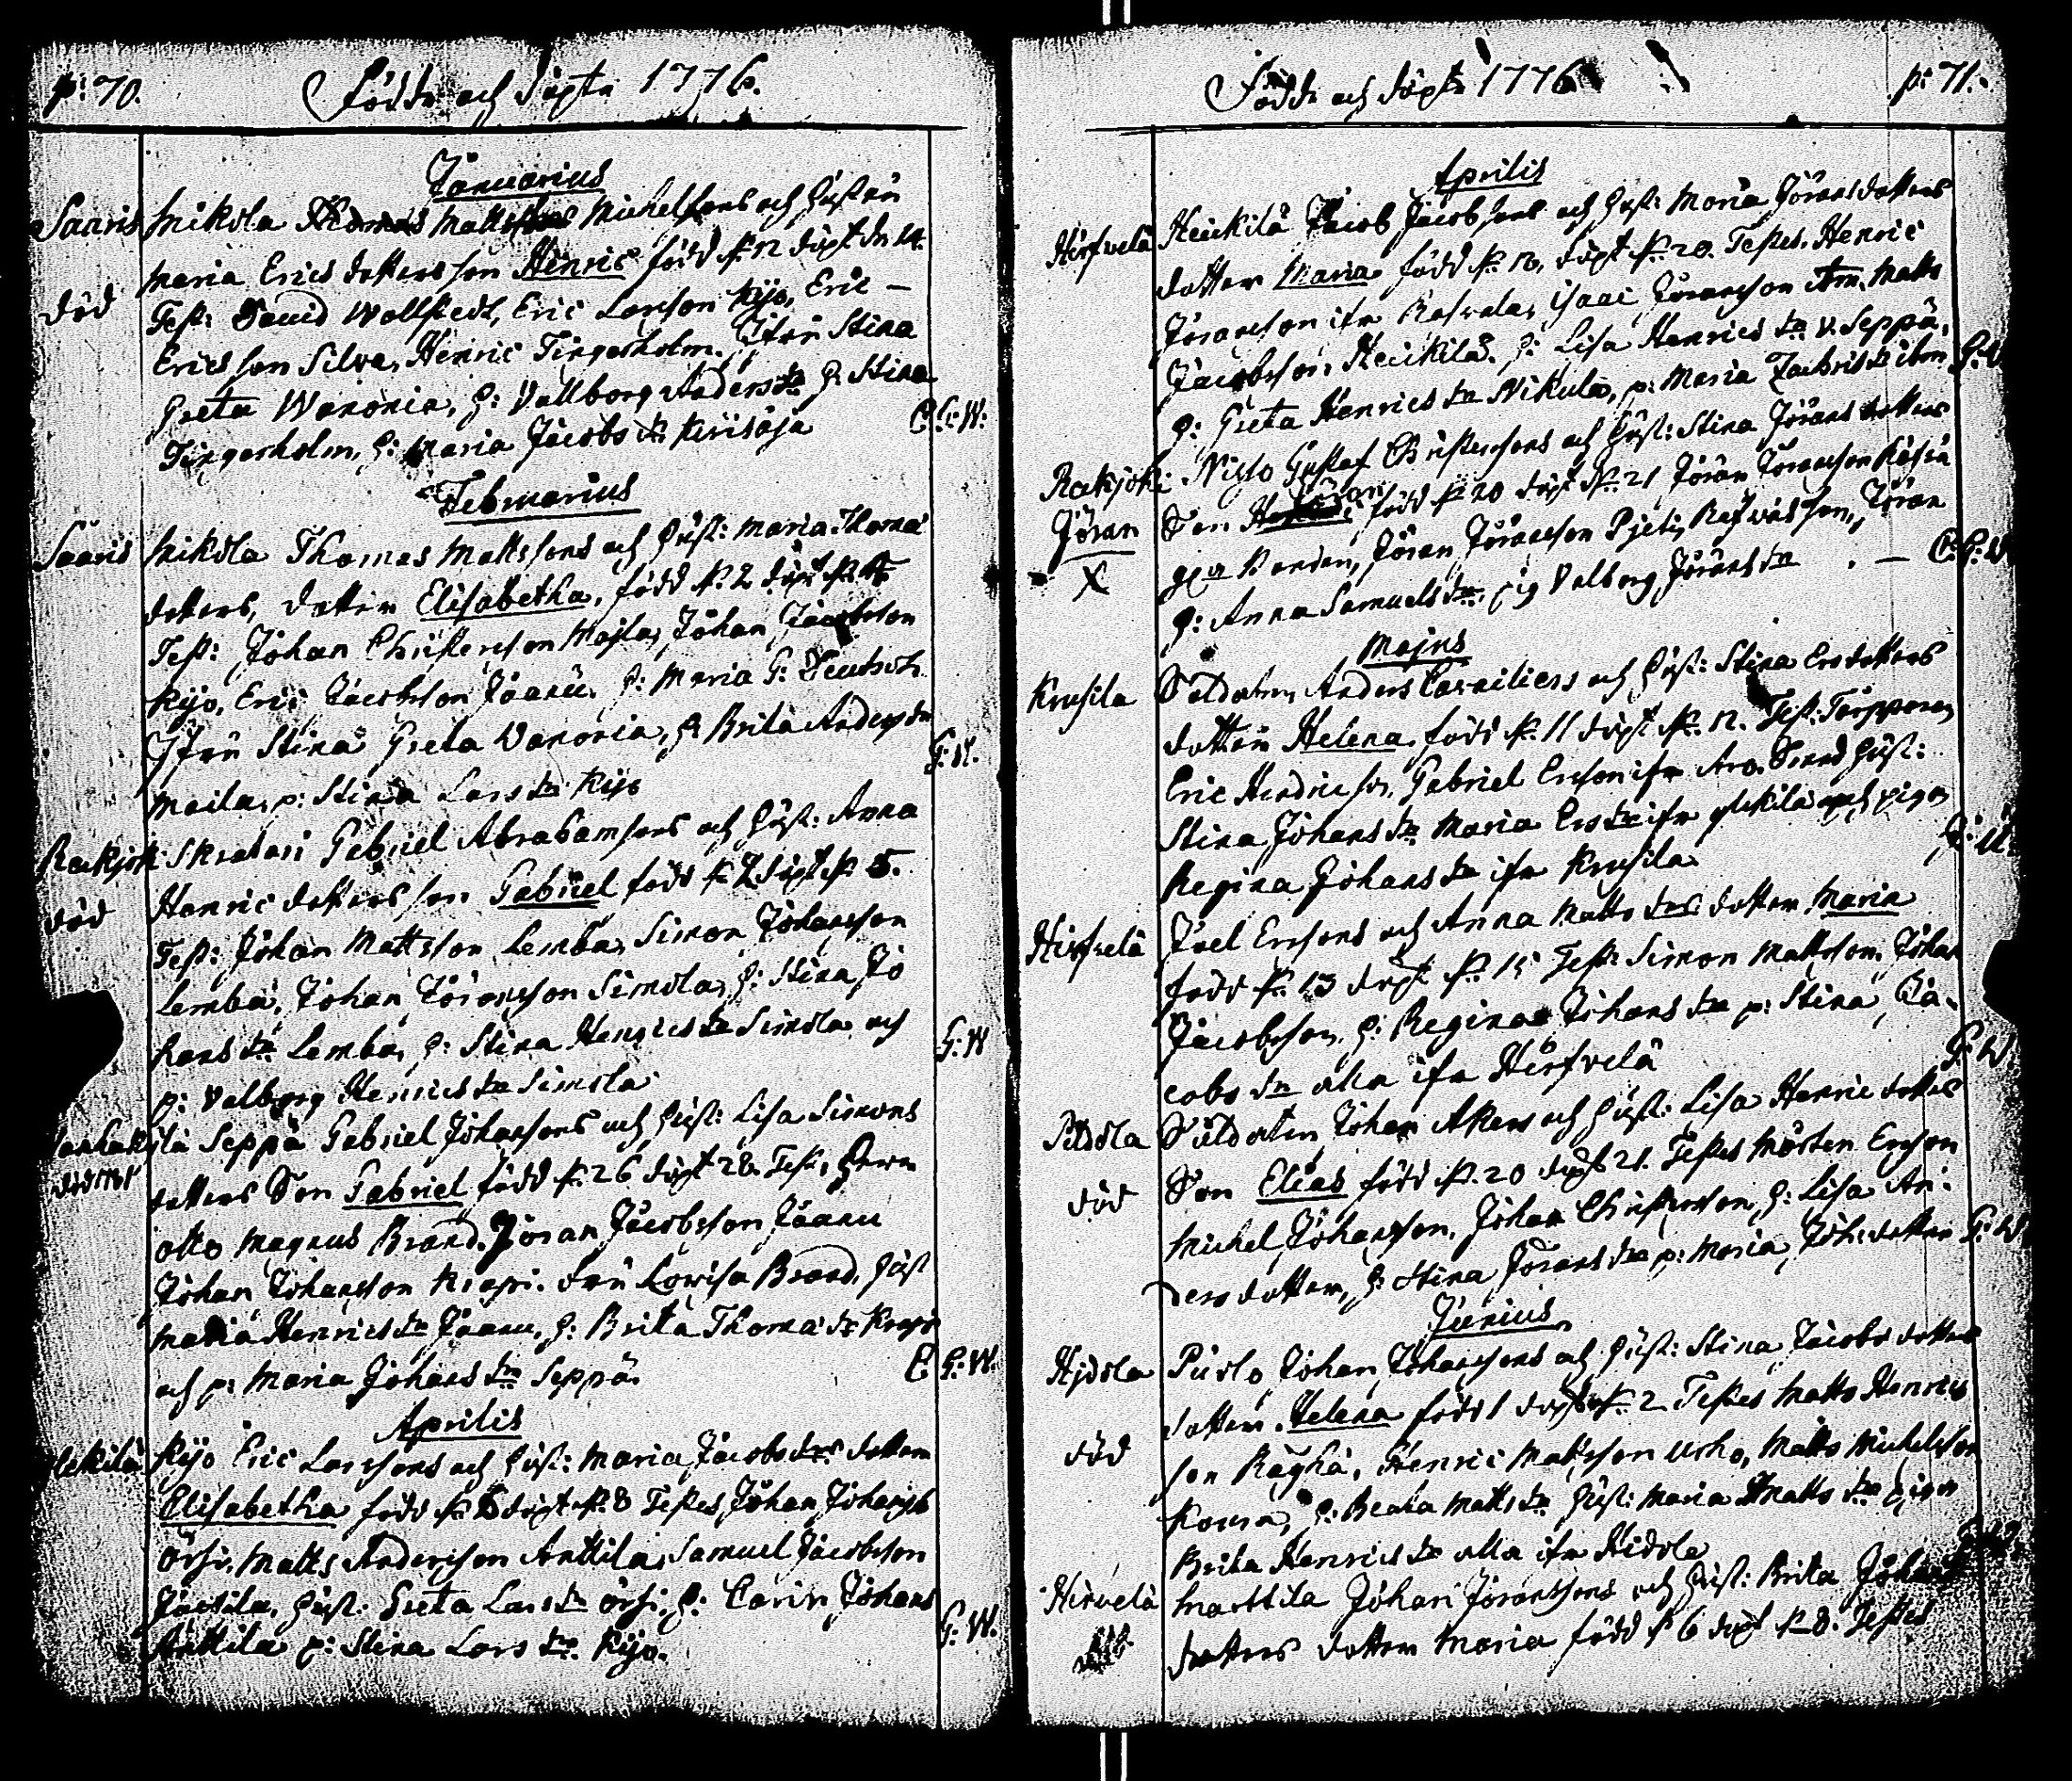 p: 70.
Födde och döpte 1776.
Januarius
Saaris Mikola Thomas Mattssons Michelssons och Hustru
Maria Erics dotters son Henric född d: 12 döpt d: 14.
död Test: David Wallstedt, Eric Larsson Kijo, Eric –
Ericsson Silva, Henric Tingerholm. Jfrn Stina
Greta Wanonia, h: Vallborg Anders dr h: Stina
Tingerholm, p: Maria Jacobs dr Kiriäjä C. G: W:
Februarius
Saaris Mikola Thomas Mattssons och Hust: Maria Thomæ
dotters, dotter Elisabetha, född d: 2 döpt d:
Test: Johan Christersson Majla, Johan Jacobsson
Kijo, Eric Jacobsson Jaanu. h: Maria G: Deutsch
Jfrn Stina Greta Wanonia, h: Brita Anders dr
Maila, p: Stina Lars dr Kijo G: W.
Rakjok: Skratari Gabriel Abrahamsons och Hust: Anna
Henric dotters son Gabriel född d: 2 döpt d: 5.
död Test: Johan Mattsson Lemba, Simon Johansson
Lemba, Johan Göransson Simola, h: Stina Jo
hans dr Lemba, h: Stina Henrics dr Simola och
p: Valborg Henrics dr Simola G: W
Seppä Gabriel Johansons och Hust: Lisa Simons
dotters Son Gabriel född d: 26 döpt 28. Test: Herrn
Otto Magnus Brand. Jöran Jacobsson Jaanu
Johan Johansson Krapi. Fru Lowisa Brand, Hust
Maria Henrics dr Jaanu, h: Brita Thomæ dr Krapi
och p: Maria Johans dr Seppä. C G: W.
Aprilis
Kijo Eric Larssons och Hust: Maria Jacobs drs dotter
Elisabetha född d: döpt d: 8 Testes Johan Johanss
Örsi. Matts Andersson Anttila, Samuel Jacobsson
Jacsila, Hust: Greta Lars dr Örsi. h: Carin Johans
Anttila p: Stina Lars dr Kijo. G: W.
Födde och döpte 1776
p: 71.
Aprilis
Hirfvelä Heickilä Jacob Jacobsons och Hust: Maria Jörans dotters
dotter Maria född d: 16, döpt d: 20. Testes. Henric
Jöransson ifr Rasvala, Isaac Göransson Matts
Jacobsson Heickilä. h: Lisa Henrics dr v. Seppä,
h: Greta Henrics dr Nikula, p: Maria Zachris dr G: W
Rakjoki Nisto Gustaf Christerssons och Hust: Stina Jörans dotters
Göran Son Jöran född d: 20 döpt d: 21 Jöran Jöransson
X Bonden, Jöran Jöransson Pjeti, Jöran
h: Anna Samuels dr, pig Valborg Jörans dr . – C: G: W
Majus
Krusila Soldaten Anders Carniliess och Hust: Stina Ers dotters
dotter Helena, född d: 11 döpt d: 12. Test: Torpparen
Eric Hendricss, Gabriel Ersson ifr Aro. Hust:
Stina Johans dr Maria Ers dr ifr Hekilä och pigan
Regina Johans dr ifr Krusila
Hirfvelä Joel Erssons och Anna Matts drs dotter Maria
född d: 13 döpt d: 15 Test: Simon Mattsson, Johan
Jacobsson, h: Regina Johans dr p: Stina Ja-
cobs dr alla ifr Hirfvelä G: W
Soldaten Johan Akers och Hust: Lisa Henric dotters
död Son Elias född d: 20 döpt 21. Testes Mårten Ersson
Michel Johansson, Johan Christersson, h: Lisa An:
ders dotter, h: Stina Jörans dr p: Maria Joh: dotter G: W
Junius
Hjdola Pislo Johan Johanssons och Hust: Stina Jacobs dotters
dotter. Helena född 1 döpt d: 2 Testes Matts Henrics
död son Raghä, Henric Mattsson Urho, Matts Michelsson
h: Beata Matts dr Hust: Maria Matts dr pigan
Brita Henrics dr alla ifr Hidola
Hirvelä Marttila Johan Jöranssons och Hust: Brita Johans
dotters dotter Maria född d: 6 döpt d: 8. Testes